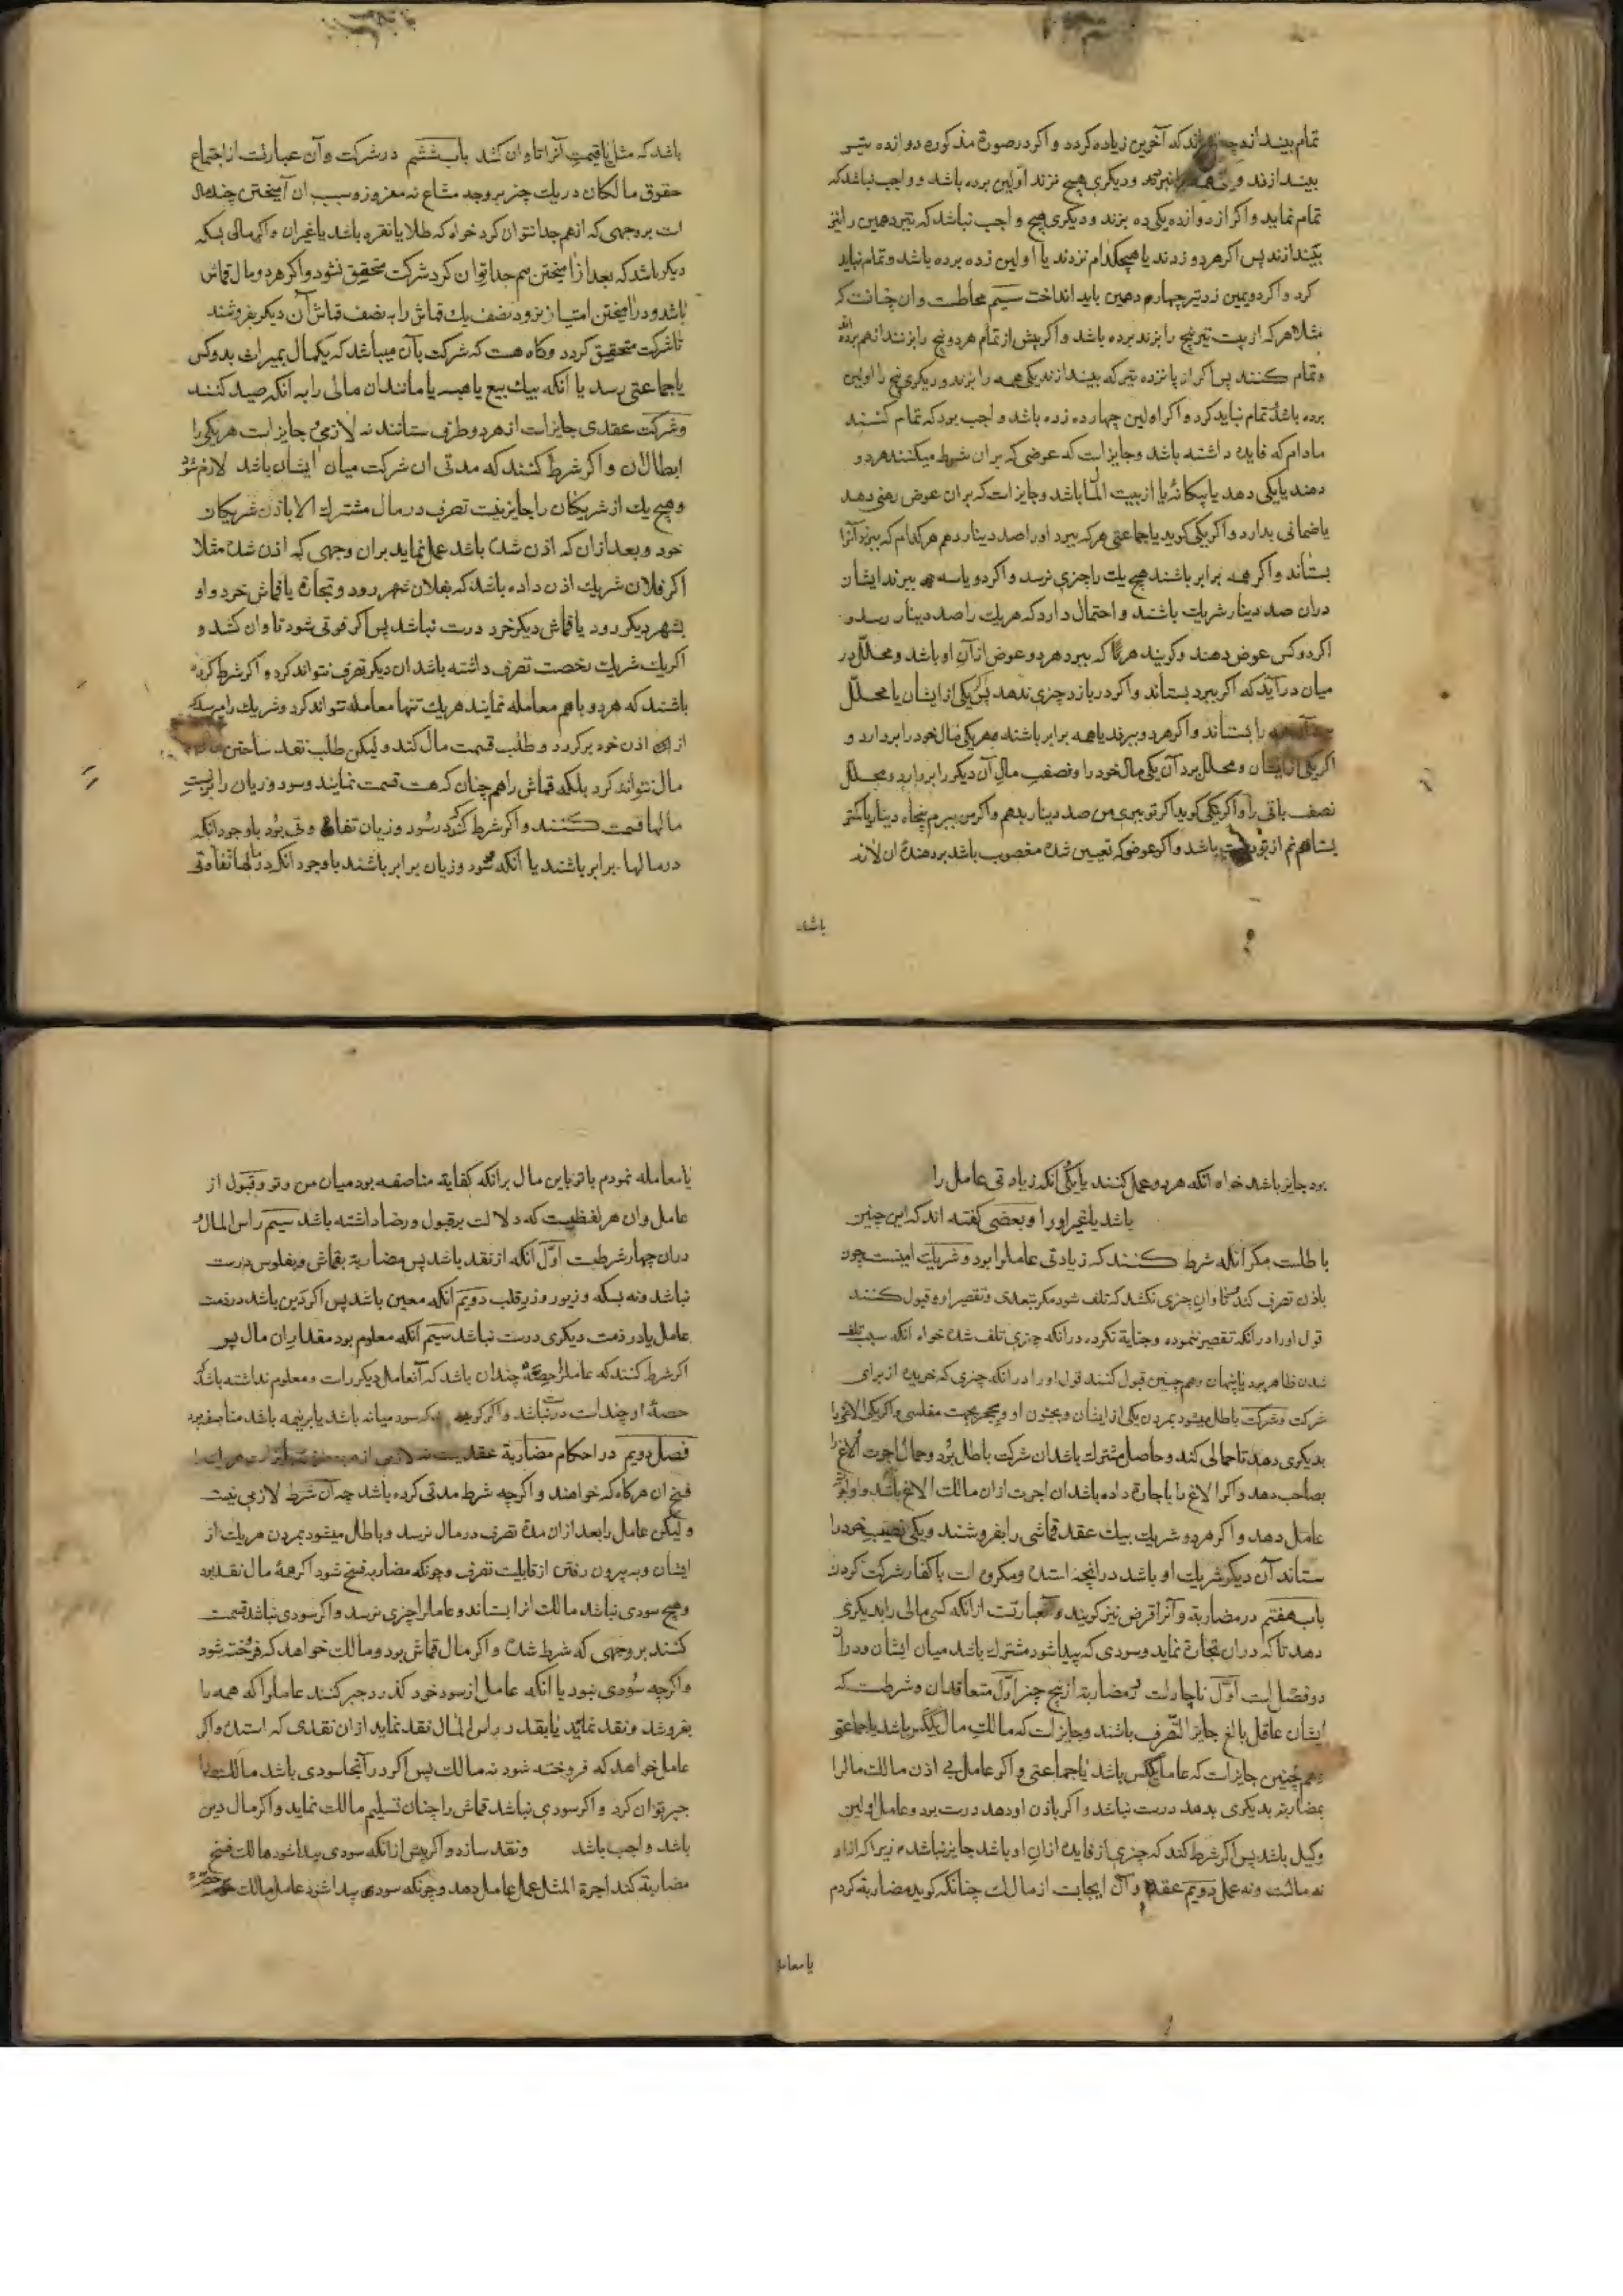 تمام بیندازند که آخرین زیاده کردد و اکر در صورة مذکوره دوازده تیر
بیندازند و دیکری هیچ نزند اولین برده باشد و واجب نباشد که
تمام نماید و اکر از دوازده یکی ده بزند و دیکری هیچ واجب نباشد که تیر دهمین را نیز
بیندازند پس اکر هر دو زدند یا هیچکدام نزدند یا اولین زده برده باشد و تمام نباید
کرد و اکر دویمین زد تیر چهاردهمین باید انداخت سیم محاطت و ان چنانست که
مثلا هر که از بیست تیر پنج را بزند برده باشد و اکر پیش از تمام هر دو پنج را بزنند از هم برده اند
و تمام کنند پس اکر از پانزده تیر که بیندازند یکی همه را بزند و دیکری پنج را اولین
برده باشد تمام نباید کرد و اکر اولین چهارده زده باشد واجب بود که تمام کنند
مادام که فایده داشته باشد و جایز است که عوضی که بران شرط میکنند هر دو
دهند یا یکی دهد یا بیکانهٔ یا از بیت المال باشد و جایز است که بران عوض رهنی دهد
یا ضمانی بدارد و اکر یکی کوید با جماعتی هر که ببرد او را صد دینار دهم هر کدام که ببرد آنرا
بستاند و اکر همه برابر باشند هیچ یک را چیزی نرسد و اکر دو یا سه ببرند ایشان
دران صد دینار شریک باشند و احتمال دارد که هر یک را صد دینار رسد و
اکر دو کس عوض دهند و کویند هر کدام که ببرد هر دو عوض از آن او باشد و محلل در
میان درآید که اکر ببرد بستاند و اکر در بازد چیزی ندهد پس یکی از ایشان یا محلل
را بستاند و اکر هر دو ببرند یا همه برابر باشند هر یکی مال خود را بردارد و
اکر یکی از ایشان و محلل برد آن یکی مال خود را و نصف مال آن دیکر را بردارد و محلل
نصف باقی را و اکر یکی کوید اکر تو ببری من صد دینار بدهم و اکر من ببرم پنجاه دینار یا کمتر
بستانم از تو درست باشد و اکر عوض که تعیین شده مغصوب باشد بر دهندهٔ ان لازم
باشد
باشد که مثل یا قیمت آنرا تاوان کشد باب ششم در شرکت و آن عبارتست از اجتماع
حقوق مالکان در یک چیز بر وجه مشاع نه مفروز و سبب ان آمیختن چند مال
است بر وجهی که از هم جدا نتوان کرد خواه که طلا یا نقره باشد یا غیر ان و اکر مالی بسکه
دیکر باشد که بعد از آمیختن بهم جدا توان کرد شرکت متحقق نشود و اکر هر دو مال قماش
باشد و در آمیختن امتیاز نرود نصف یک قماش را به نصف قماش آن دیکر بفروشند
تا شرکت متحقق کردد و کاه هست که شرکت بآن میباشد که یکمال بمیراث بدو کس
یا جماعتی رسد یا آنکه بیک بیع یا هبه یا مانند ان مالی را به آنکه صید کنند
و شرکت عقدی جایز است از هر دو طرف ستانند نه لازمی و جایز است هر یکی را
ابطال ان و اکر شرط کنند که مدتی ان شرکت میان ایشان باشد لازم نشود
و هیچ یک از شریکان را جایز نیست تصرف در مال مشترک الا باذن شریکان
خود و بعد ازان که اذن شده باشد عمل نماید بران وجهی که اذن شده مثلا
اکر فلان شریک اذن داده باشد که بفلان شهر رود و تجارة یا قماش خرد و او
بشهر دیکر رود یا قماش دیکر خرد درست نباشد پس اکر فوتی شود تاوان کشد و
اکر یک شریک رخصت تصرف داشته باشد ان دیکر تصرف نتواند کرد و اکر شرط کرده
باشند که هر دو باهم معامله نمایند هر یک تنها معامله نتواند کرد و شریک را میرسد که
از اذن خود برکردد و طلب قسمت مال کند ولیکن طلب نقد ساختن
مال نتواند کرد بلکه قماش را هم چنان که هست قسمت نمایند و سود و زیان را بر نسبت
مالها قسمت کنند و اکر شرط کنند که در سود و زیان تفاوتی بود باوجود آنکه
در مالها برابر باشند یا آنکه سود و زیان برابر باشند باوجود آنکه در مالها تفاوتی
بود جایز باشد خواه آنکه هر دو عمل کنند یا یکی انکه زیادتی عامل را
باشد یا غیر او را و بعضی کفته اند که این چنین
باطلست مکر آنکه شرط کنند که زیادتی عامل را بود و شریک امینست چون
باذن تصرف کند تاوان چیزی نکشد که تلف شود مکر بتعدی و تقصیر او و قبول کنند
قول او را در آنکه تقصیر ننموده و جنایة نکرده در آنکه چیزی تلف شده خواه آنکه سبب تلف
شدن ظاهر بود یا پنهان و هم چنین قبول کنند قول او را در آنکه چیزی که خریده از برای
شرکت و شرکت باطل میشود بمردن یکی از ایشان و بجنون او و بحجر بجهت مفلسی و اکر یکی الاغی را
بدیکری دهد تا حمالی کند و حاصل مشترک باشد ان شرکت باطل بود و حمال اجرت الاغ را
بصاحب دهد و اکر الاغ را باجاره داده باشد ان اجرت ازان مالک الاغ باشد و او اجرت
عامل دهد و اکر هر دو شریک بیک عقد قماشی را بفروشند و یکی نصیب خود را
ستاند آن دیکر شریک او باشد در آنچه استده و مکروه است با کفار شرکت کردن
باب هفتم در مضاربة و آنرا قرض نیز کویند و عبارتست از آنکه کسی مالی را بدیکری
دهد تا که دران تجارة نماید و سودی که پیدا شود مشترک باشد میان ایشان و در آن
دو فصل است اول ناچار است در مضاربة از پنج چیز اول متعاقدان و شرطست که
ایشان عاقل بالغ جایز التصرف باشند و جایز است که مالک مال یکی باشد یا جماعتی
و هم چنین جایز است که عامل یک کس باشد یا جماعتی و اکر عامل بی اذن مالک مال را
بمضاربة بدیکری بدهد درست نباشد و اکر باذن او دهد درست بود و عامل اولین
وکیل باشد پس اکر شرط کند که چیزی از فایده ازان او باشد جایز نباشد زیرا که از او
نه مالست و نه عمل دویم عقد و آن ایجابست از مالک چنانکه کوید مضاربة کردم
یا معامله
یا معامله نمودم با تو باین مال برانکه کفایة مناصفه بود میان من و تو و قبول از
عامل و ان هر لفظیست که دلالت بر قبول و رضا داشته باشد سیم راس المال و
دران چهار شرطست اول آنکه از نقد باشد پس مضاربة بقماش و بفلوس درست
نباشد و نه بسکه و زیور و زر قلب دویم آنکه معین باشد پس اکر دین باشد در ذمت
عامل یا در ذمت دیکری درست نباشد سیم آنکه معلوم بود مقدار ان مال پس
اکر شرط کنند که عامل را حصهٔ چندان باشد که آن عامل دیکر راست و معلوم نداشته باشند که
حصهٔ او چند است درست نباشد و اکر کوید که سود میانه باشد یا بر نیمه باشد مناصفه بود
فصل دویم در احکام مضاربة عقدیست نه لازمی
فسخ ان هرکاه که خواهند و اکرچه شرط مدتی کرده باشد چه آن شرط لازمی نیست
و لیکن عامل را بعد ازان مدة تصرف در مال نرسد و باطل میشود بمردن هر یک از
ایشان و به بیرون رفتن از قابلیت تصرف و چونکه مضاربه فسخ شود اکر همهٔ مال نقد بود
و هیچ سودی نباشد مالک انرا بستاند و عامل را چیزی نرسد و اکر سودی نباشد قسمت
کنند بر وجهی که شرط شده و اکر مال قماش بود و مالک خواهد که فروخته شود
و اکرچه سودی نبود یا آنکه عامل از سود خود کذرد جبر کنند عامل را که همه را
بفروشد و نقد نماید یا بقدر راس المال نقد نماید ازان نقدی که استده و اکر
عامل خواهد که فروخته شود نه مالک پس اکر در آنجا سودی باشد مالک را
جبر توان کرد و اکر سودی نباشد قماش را چنان تسلیم مالک نماید و اکر مال دین
باشد واجب باشد و نقد سازد و اکر پیش ازانکه سودی پیدا شود مالک فسخ
مضاربة کند اجرة المثل عمل عامل دهد و چونکه سودی پیدا شود عامل مالک حصهٔ